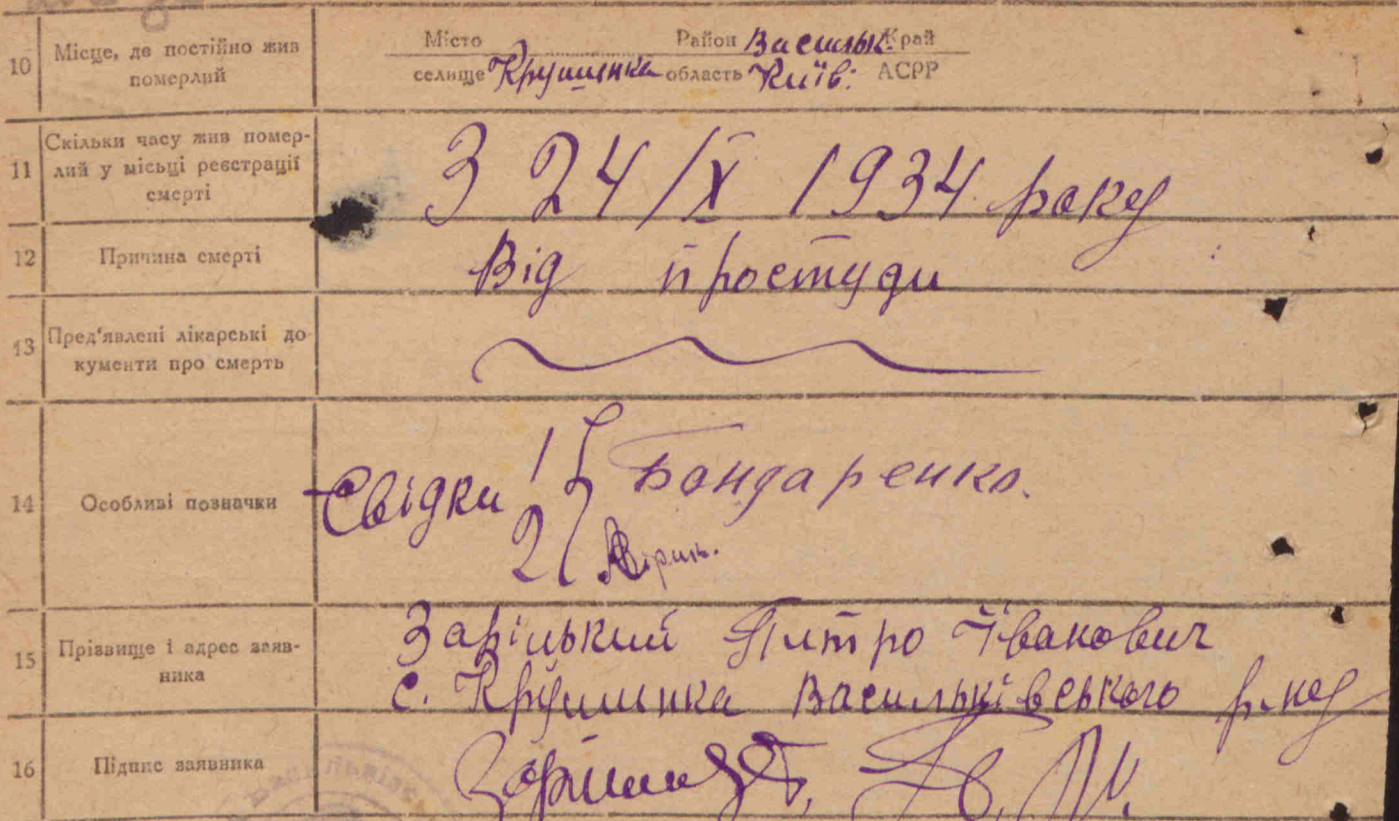 10 Місце, де постійно жив померлий
Місто Район Васильк. Край
селище Крушинка область Київ. АСРР
11 Скільки часу жив помер-
лий у місьці реєстрації
смерті
З 24/X 1934 року
12 Причина смерті
Від простуди
13 Пред'явлені лікарські до-
кументи про смерть
14 Особливі позначки
Свідки 1 Бондаренко.
2
15 Прізвище і адрес заяв-
ника
Заріцький Питро Іванович
с. Крушинка Васильківського р-ну
16 Підпис заявника